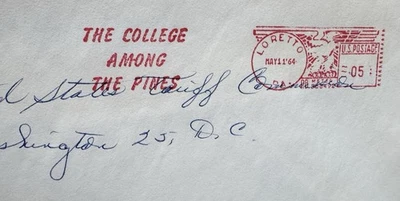 THE COLLEGE
AMONG
THE PINES
LORETTO
MAY 11'64
PA.
U.S. POSTAGE
05
States Tariff
Washington 25, D.C.